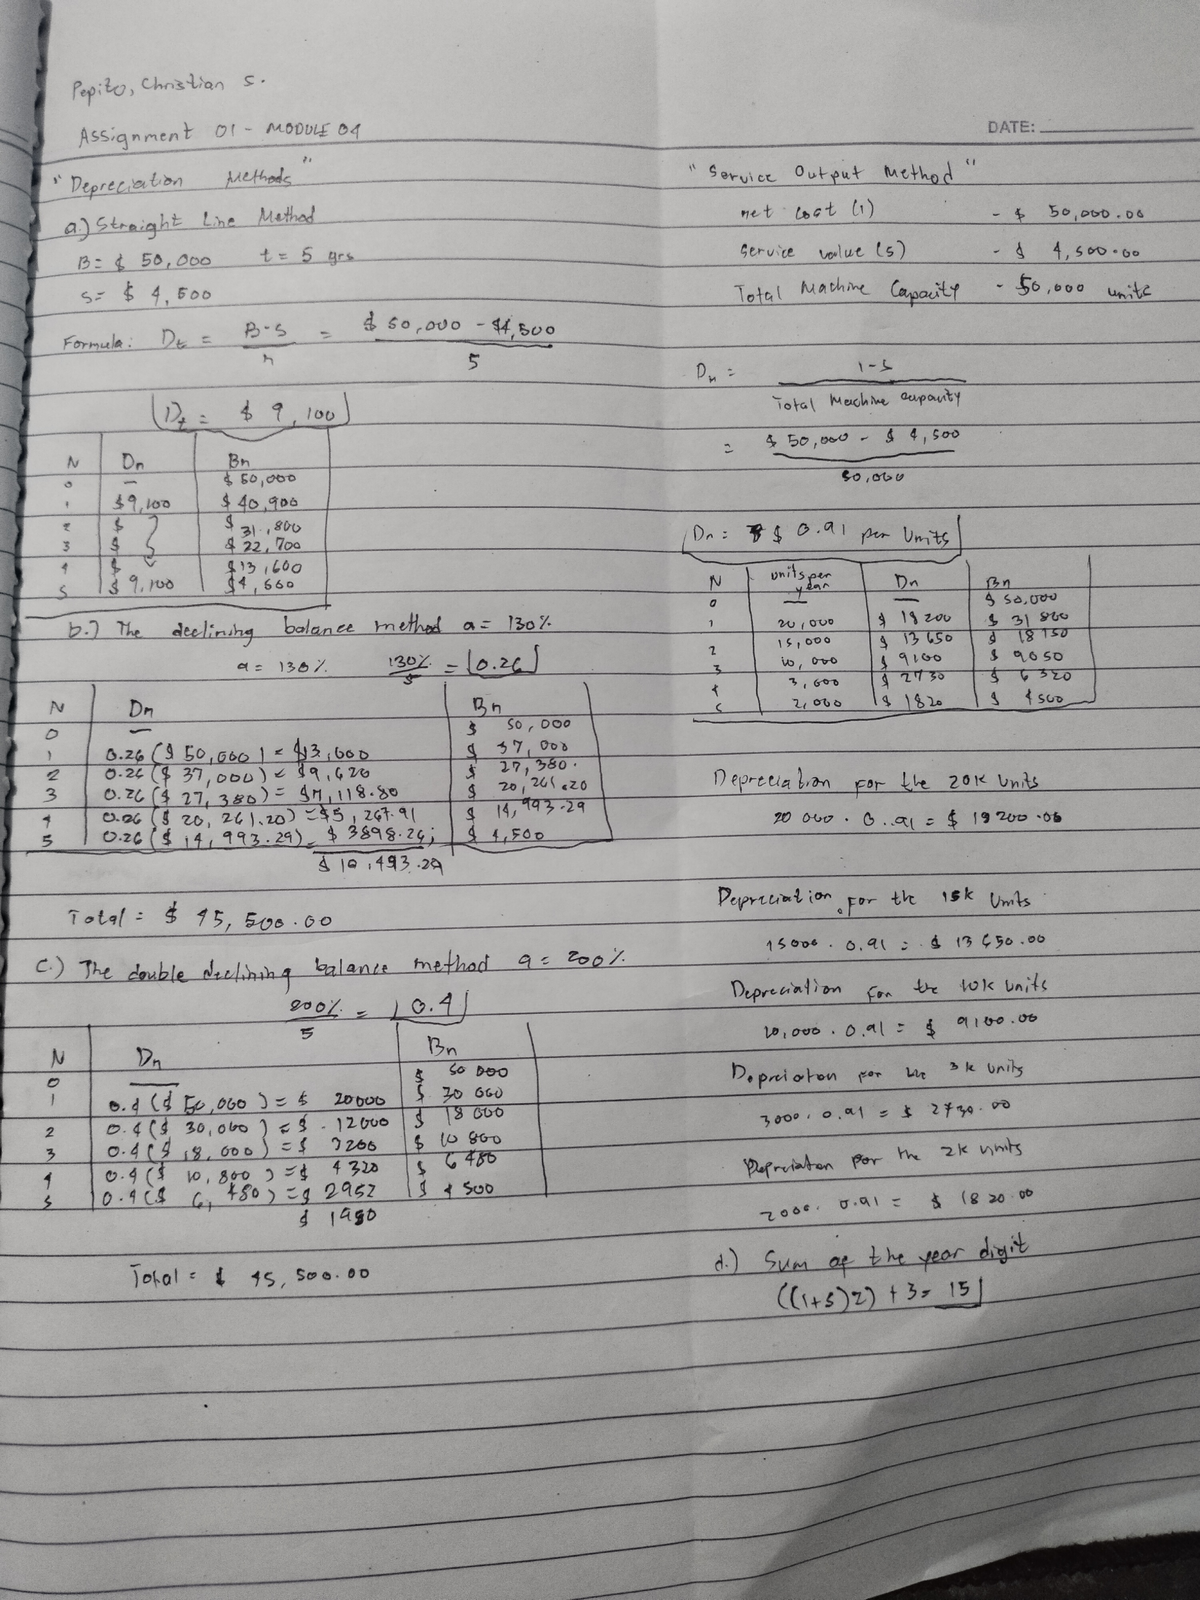 Pepito, Christian S.
Assignment 01 - MODULE 04
"Depreciation Methods"
a.) Straight Line Method
B = $ 50,000 t = 5 yrs
S = $ 4,500
Formula: Dt = B-S / n = $ 50,000 - $4,500 / 5
Dt = $ 9,100
N Dn Bn
0 — $ 50,000
1 $9,100 $ 40,900
2 $ $ 31,800
3 $ $ 22,700
4 $ $13,600
5 $ 9,100 $4,500
b.) The declining balance method a = 130%
a = 130% 130% / 5 = 0.26
N Dn Bn
0 — $ 50,000
1 0.26 ($ 50,000) = $13,000 $ 37,000
2 0.26 ($ 37,000) = $9,620 $ 27,380.
3 0.26 ($ 27,380) = $7,118.80 $ 20,261.20
4 0.26 ($ 20,261.20) = $5,267.91 $ 14,993.29
5 0.26 ($ 14,993.29) = $ 3898.26; $ 4,500
$ 10,493.29
Total = $ 45,500.00
C.) The double declining balance method a = 200%
200% / 5 = 0.4
N Dn Bn
0 — $ 50 000
1 0.4 ($ 50,000) = $ 20000 $ 30 000
2 0.4 ($ 30,000) = $ 12000 $ 18 000
3 0.4 ($ 18,000) = $ 7200 $ 10 800
4 0.4 ($ 10,800) = $ 4320 $ 6 480
5 0.4 ($ 6,480) = $ 2952 $ 4 500
$ 1980
Total = $ 45,500.00
DATE:
"Service Output Method"
net cost (1) - $ 50,000.00
Service value (s) - $ 4,500.00
Total Machine Capacity - 50,000 units
Dn = 1-s / Total Machine capacity
= $ 50,000 - $ 4,500 / 50,000
Dn = $ 0.91 per Units
N units per year Dn Bn
0 — — $ 50,000
1 20,000 $ 18 200 $ 31 800
2 15,000 $ 13 650 $ 18 150
3 10,000 $ 9100 $ 9050
4 3,000 $ 2730 $ 6 320
5 2,000 $ 1820 $ 4500
Depreciation for the 20K Units
20 000 . 0.91 = $ 18200.00
Depreciation for the 15k Units
15000 . 0.91 = $ 13 650.00
Depreciation for the 10k Units
10,000 . 0.91 = $ 9100.00
Depreiaton for the 3k Units
3000 . 0.91 = $ 2730.00
Depreciaton for the 2k units
2000 . 0.91 = $ 1820.00
d.) Sum of the year digit
((1+5)2) + 3 = 15